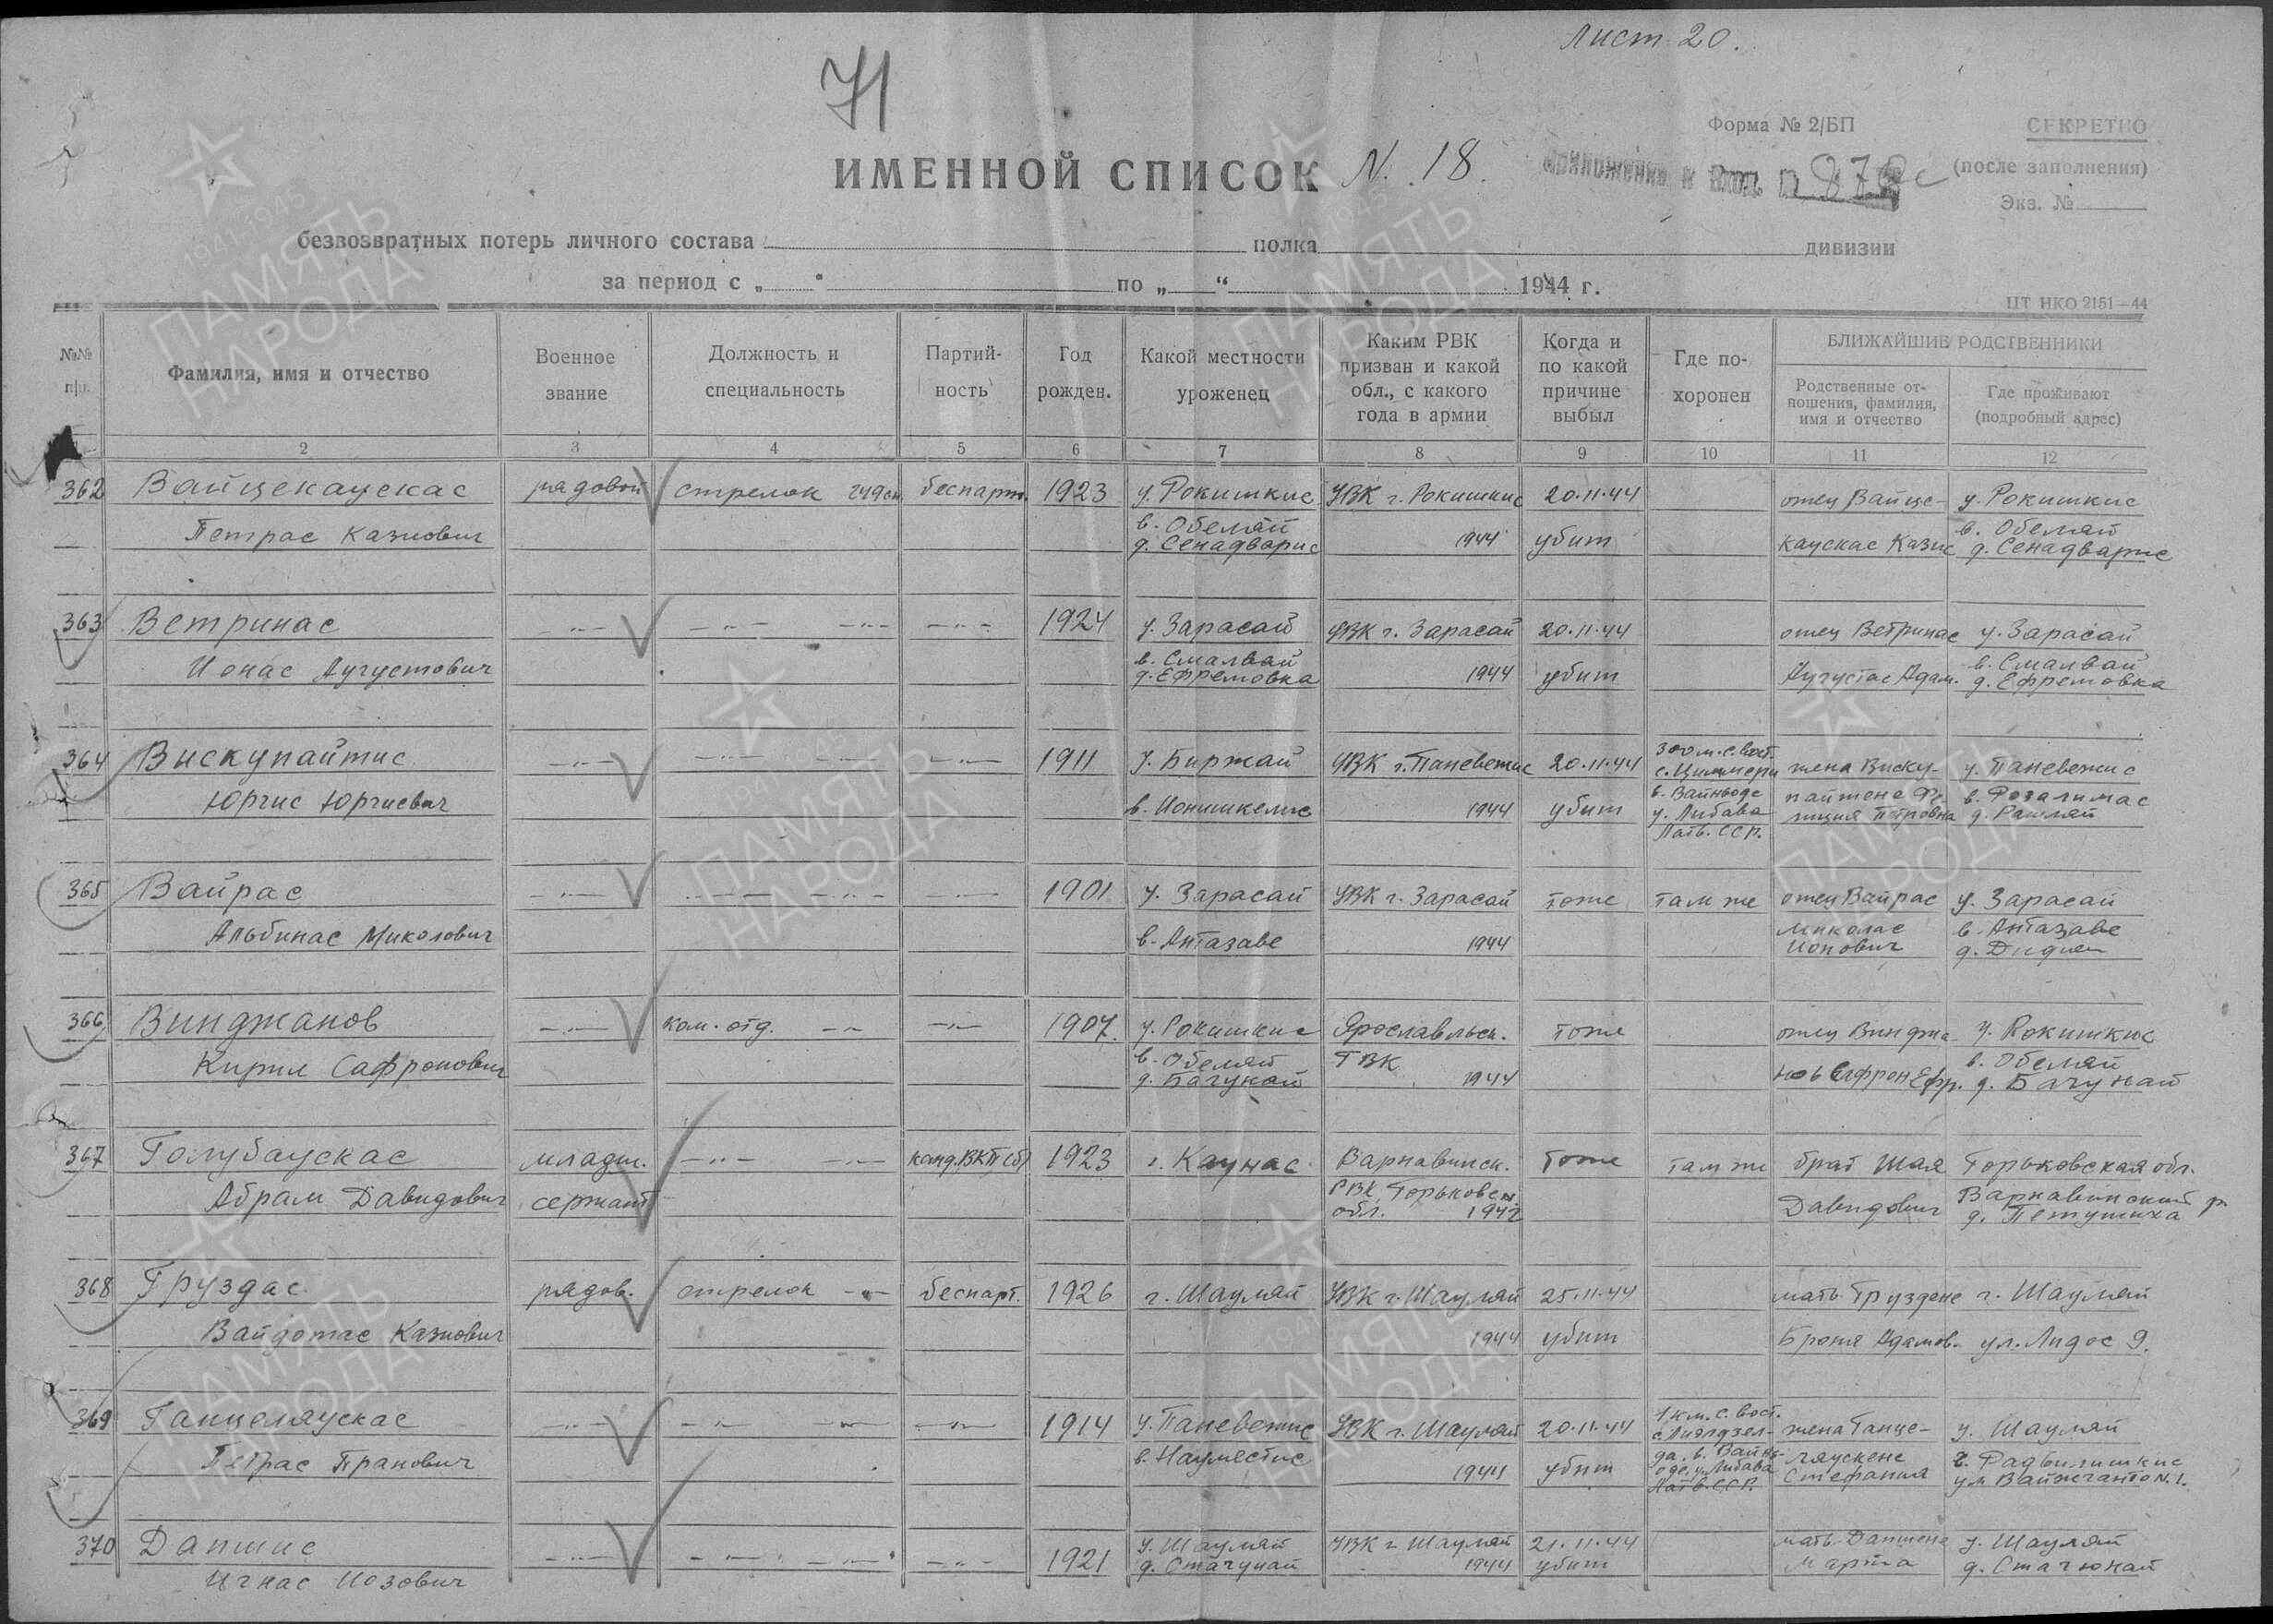 Лист 20.
71
Форма № 2/БП
СЕКРЕТНО
ИМЕННОЙ СПИСОК N. 18.
Приложение к Вход. n
(после заполнения)
Экз. №
безвозвратных потерь личного состава полка дивизии
за период с „ “ по „ “ 1944 г.
ЦТ НКО 2151—44
№№ п/п.
Фамилия, имя и отчество
Военное звание
Должность и специальность
Партий-ность
Год рожден.
Какой местности уроженец
Каким РВК призван и какой обл., с какого года в армии
Когда и по какой причине выбыл
Где по-хоронен
БЛИЖАЙШИЕ РОДСТВЕННИКИ
Родственные от-ношения, фамилия, имя и отчество
Где проживают (подробный адрес)
2 3 4 5 6 7 8 9 10 11 12
362 Вайцекаускас рядовой стрелок беспарт. 1923 у. Рокишкис УВК г. Рокишкис 20.11.44 отец Вайце- у. Рокишкис
Петрас Казиович в. Обеляй д. Сенадварис 1944 убит каускас Казис в. Обеляй д. Сенадварис
363 Ветринас —"— —"— —"— —"— 1924 у. Зарасай УВК г. Зарасай 20.11.44 отец Ветринас у. Зарасай
Ионас Аугустович в. Смалвай д. Ефремовка 1944 убит Аугустас Адам. в. Смалвай д. Ефремовка
364 Вискупайтис —"— —"— —"— —"— 1911 у. Биржай УВК г. Паневежис 20.11.44 300 м. с. вост. с. Циммери жена Виску- у. Паневежис
Юргис Юргиевич в. Ионишкелис 1944 убит в. Вайньоде у. Либава Латв. ССР. пайтене Фе-лиция Петровна в. Розалимас д. Рашляй
365 Вайрас —"— —"— —"— —"— 1901 у. Зарасай УВК г. Зарасай тоже там же отец Вайрас у. Зарасай
Альбинас Миколович в. Антазаве 1944 Миколас Ионович в. Антазаве
366 Винджанов —"— ком. отд. —"— —"— 1907. у. Рокишкис Ярославльск. тоже отец Винджа- у. Рокишкис
Кирил Сафронович в. Обеляй д. Багунай ГВК 1944 нов Сафрон Ефр. в. Обеляй д. Багунай
367 Голубаускас младш. —"— —"— канд. ВКП(б) 1923 г. Каунас Варнавинск. тоже там же брат Шая Горьковская обл.
Абрам Давидович сержант РВК Горьковск. обл. 1942 Давидович Варнавинский р. д. Петушиха
368 Груздас рядов. стрелок —"— беспарт. 1926 г. Шауляй УВК г. Шауляй 25.11.44 мать Груздене г. Шауляй
Вайдотас Казиович 1944 убит Броня Адамов. ул. Лидос 9.
369 Ганцеляускас —"— —"— —"— —"— 1914 у. Паневежис УВК г. Шауляй 20.11.44 1 км. с. вост. жена Ганце- у. Шауляй
Петрас Пранович в. Науместис 1944 убит да, в. Вайнь-оде, у. Либава Латв. ССР. ляускене Стефания г. Радвилишкис ул. Вайжганто N. 1.
370 Дапшис —"— —"— —"— —"— 1921 у. Шауляй д. Стачунай УВК г. Шауляй 1944 21.11.44 убит мать Дапшене Марта у. Шауляй д. Стачюнай
Игнас Иозович
ПАМЯТЬ НАРОДА